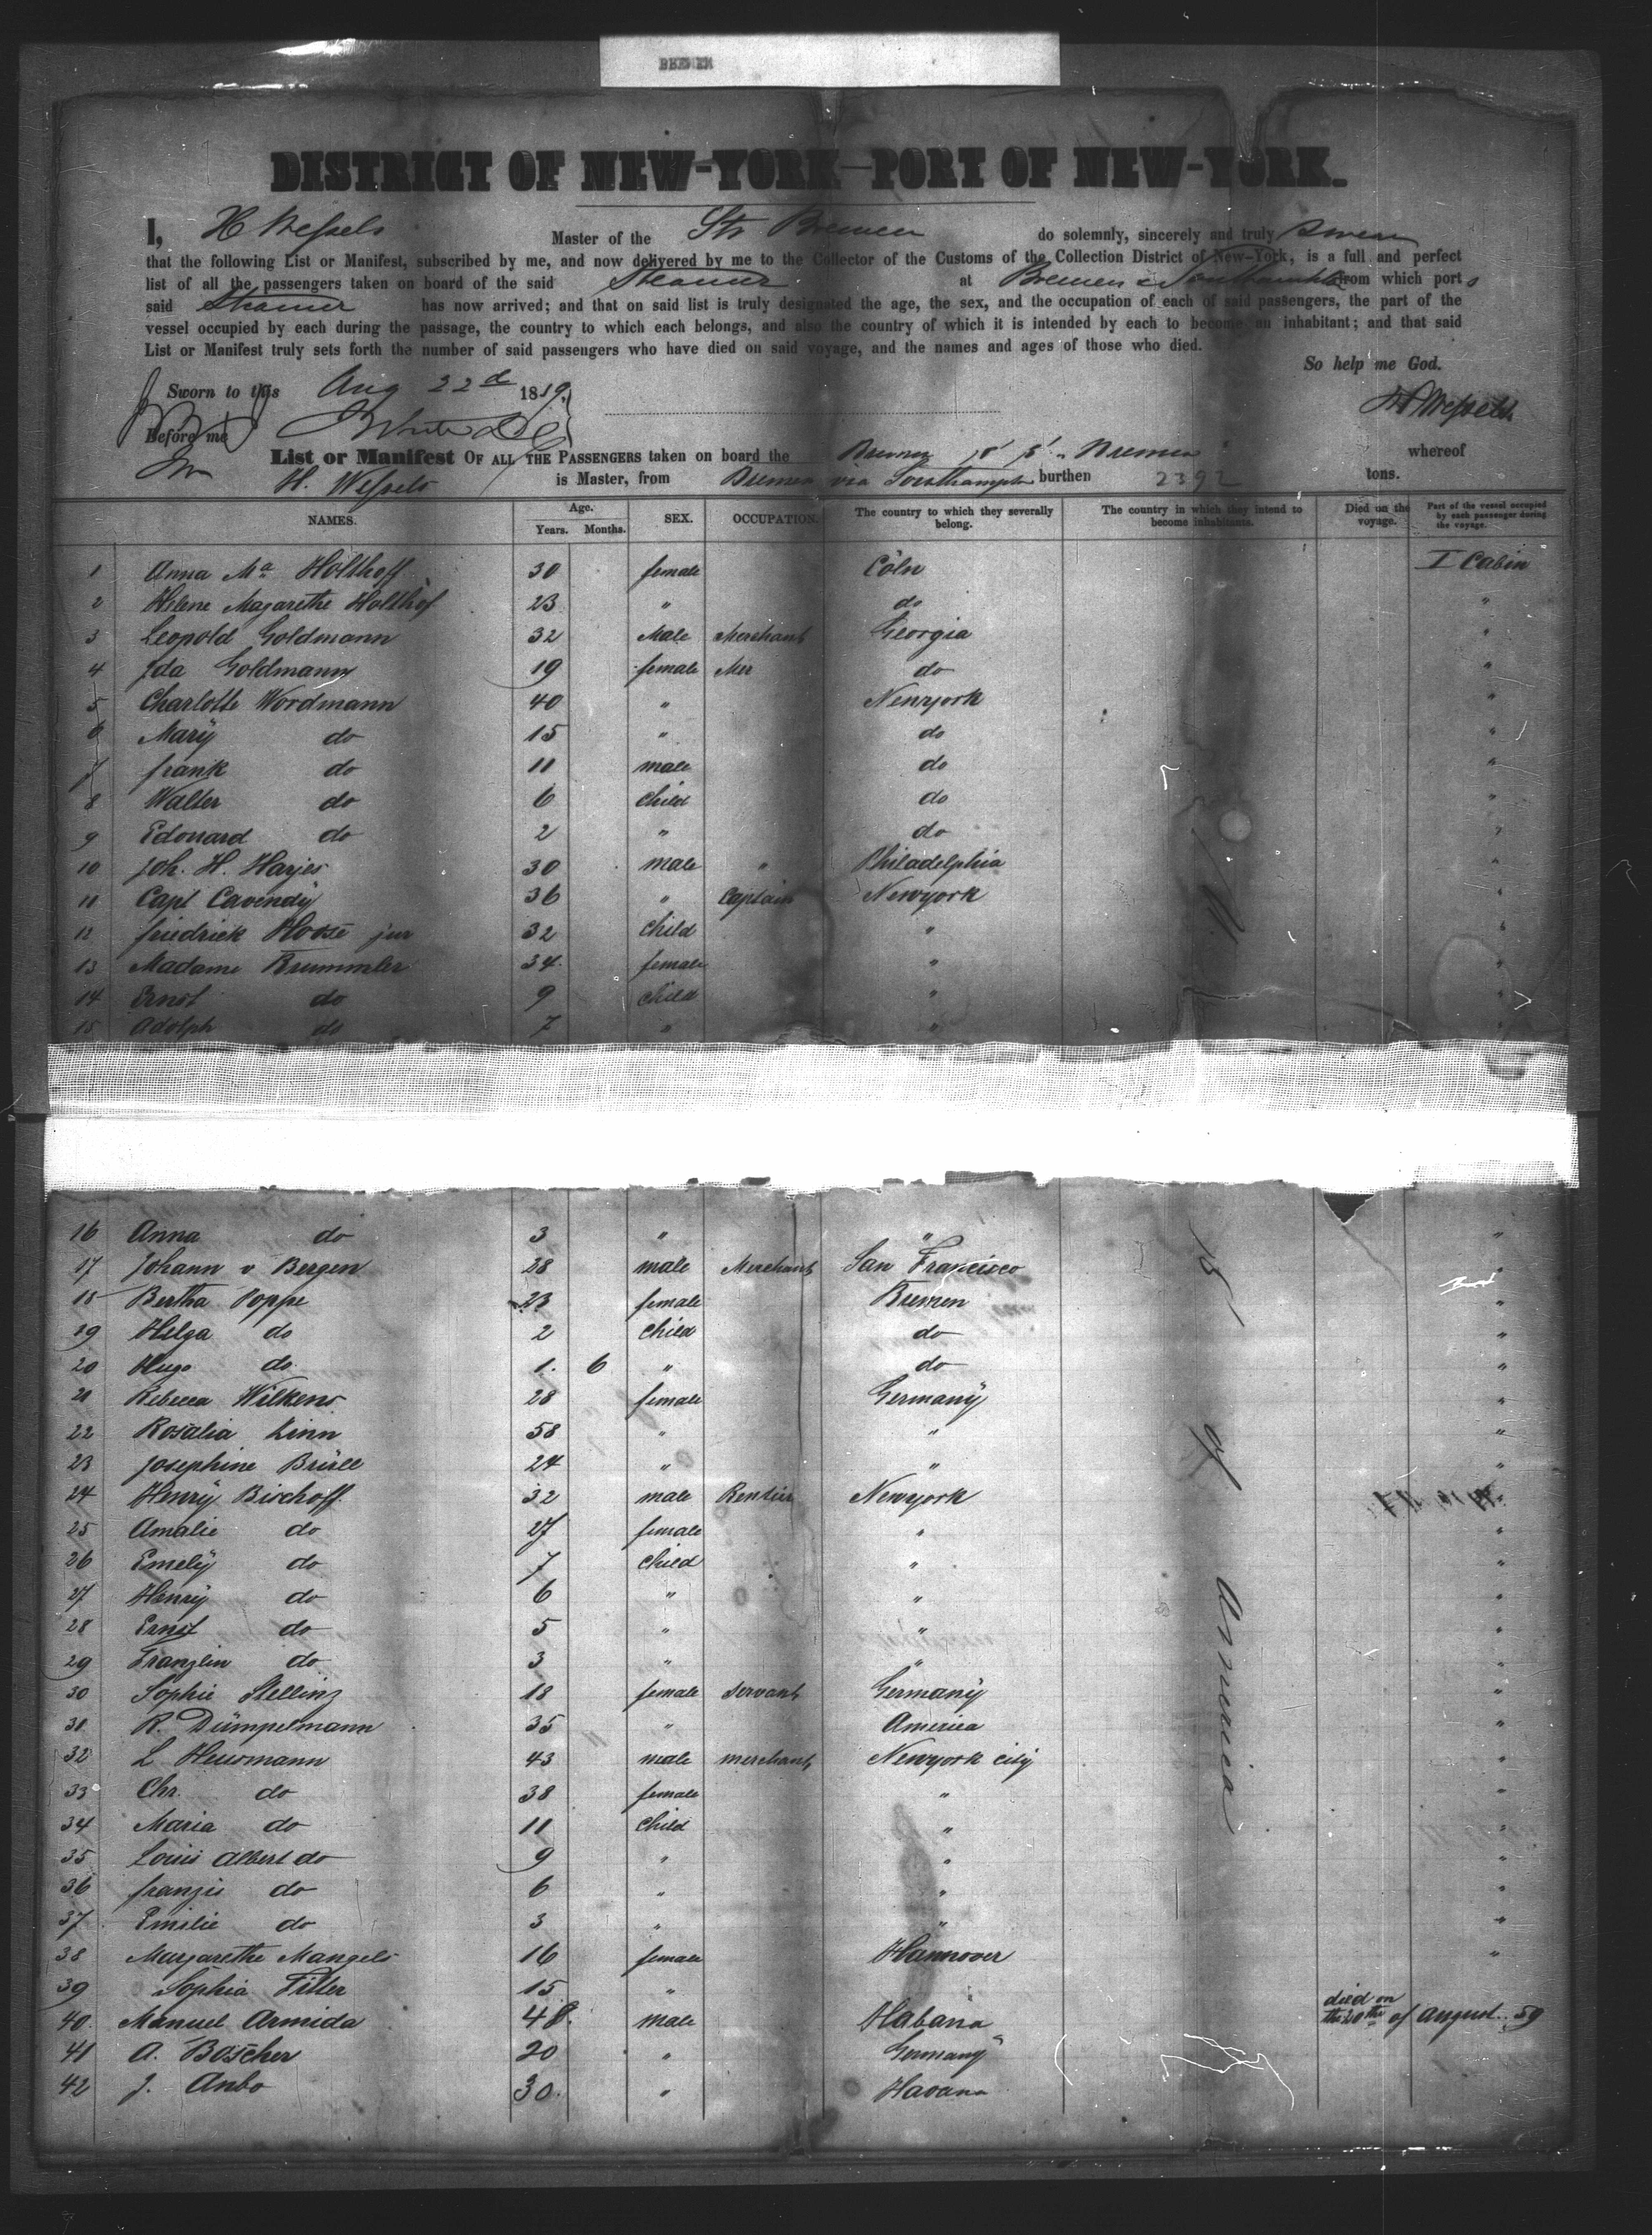 BREMEN
DISTRICT OF NEW-YORK—PORT OF NEW-YORK.
I, H Wessels Master of the Str Bremen do solemnly, sincerely and truly swear
that the following List or Manifest, subscribed by me, and now delivered by me to the Collector of the Customs of the Collection District of New-York, is a full and perfect
list of all the passengers taken on board of the said Steamer at Bremen & Southampton from which ports
said Steamer has now arrived; and that on said list is truly designated the age, the sex, and the occupation of each of said passengers, the part of the
vessel occupied by each during the passage, the country to which each belongs, and also the country of which it is intended by each to become an inhabitant; and that said
List or Manifest truly sets forth the number of said passengers who have died on said voyage, and the names and ages of those who died.
So help me God.
Sworn to this Aug 22d 1859. H Wessels
Before me
List or Manifest OF ALL THE PASSENGERS taken on board the Bremen "Bremen" whereof
H. Wessels is Master, from Bremen via Southampton burthen 2392 tons.
NAMES. Age. Years. Months. SEX. OCCUPATION. The country to which they severally belong. The country in which they intend to become inhabitants. Died on the voyage. Part of the vessel occupied by each passenger during the voyage.
1 Anna Ma Holthoff 30 female Cöln I Cabin
2 Helene Magarethe Holthof 23 " do "
3 Leopold Goldmann 32 Male Merchant Georgia "
4 Ida Goldmann 19 female Mer do "
5 Charlotte Wordmann 40 " Newyork "
6 Marÿ do 15 " do "
7 frank do 11 male do "
8 Walter do 6 child do "
9 Edouard do 2 " do "
10 Joh. H. Harjes 30 male " Philadelphia "
11 Capt Cavendy 36 " Captain Newyork "
12 friedrick Hoose jur 32 child " "
13 Madame Brummler 34 female " "
14 Ernst do 9 child " "
15 Adolph do 7 " "
16 Anna do 3 " " "
17 Johann v Bergen 28 male Merchant San Francisco "
18 Bertha Poppe 23 female Bremen "
19 Helga do 2 child do "
20 Hugo do 1. 6 " do "
21 Rebecca Wilkens 28 female Germanÿ "
22 Rosalia Linn 58 " " "
23 Josephine Brüll 24 " " "
24 Henrÿ Bischoff 32 male Rentier Newyork
25 Amalie do 27 female " "
26 Emelÿ do 7 child " "
27 Henrÿ do 6 " " "
28 Ernst do 5 " " "
29 Franzlin do 3 " " "
30 Sophie Stelling 18 female servant Germanÿ "
31 R. Dümpelmann 35 " America "
32 L Heusmann 43 male merchant Newyork citÿ "
33 Chr. do 38 female " "
34 Maria do 11 child " "
35 Louis Albert do 9 " " "
36 franzis do 6 " " "
37 Emilie do 3 " " "
38 Margarethe Mangels 16 female Hannover "
39 Sophia Filler 15 "
40. Manuel Armida 48. male Habana died on the 20th of August. 59
41 A. Boscher 20 " Germanÿ
42 J. Anbo 30. " Havana